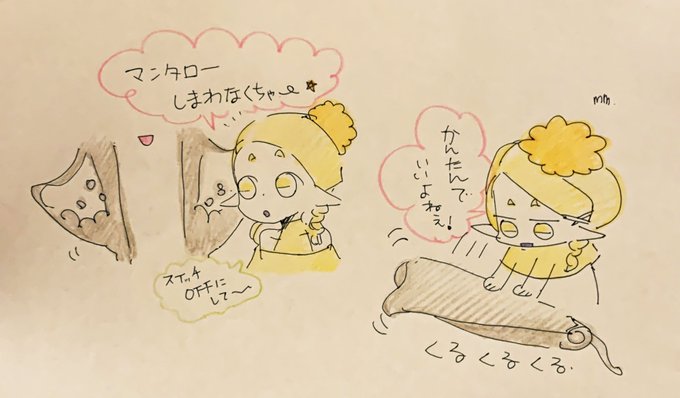 マンタロー
しまわなくちゃー
スイッチ
OFFに
して〜
mm.
かんたんで
いいよねぇ!
くるくるくる.